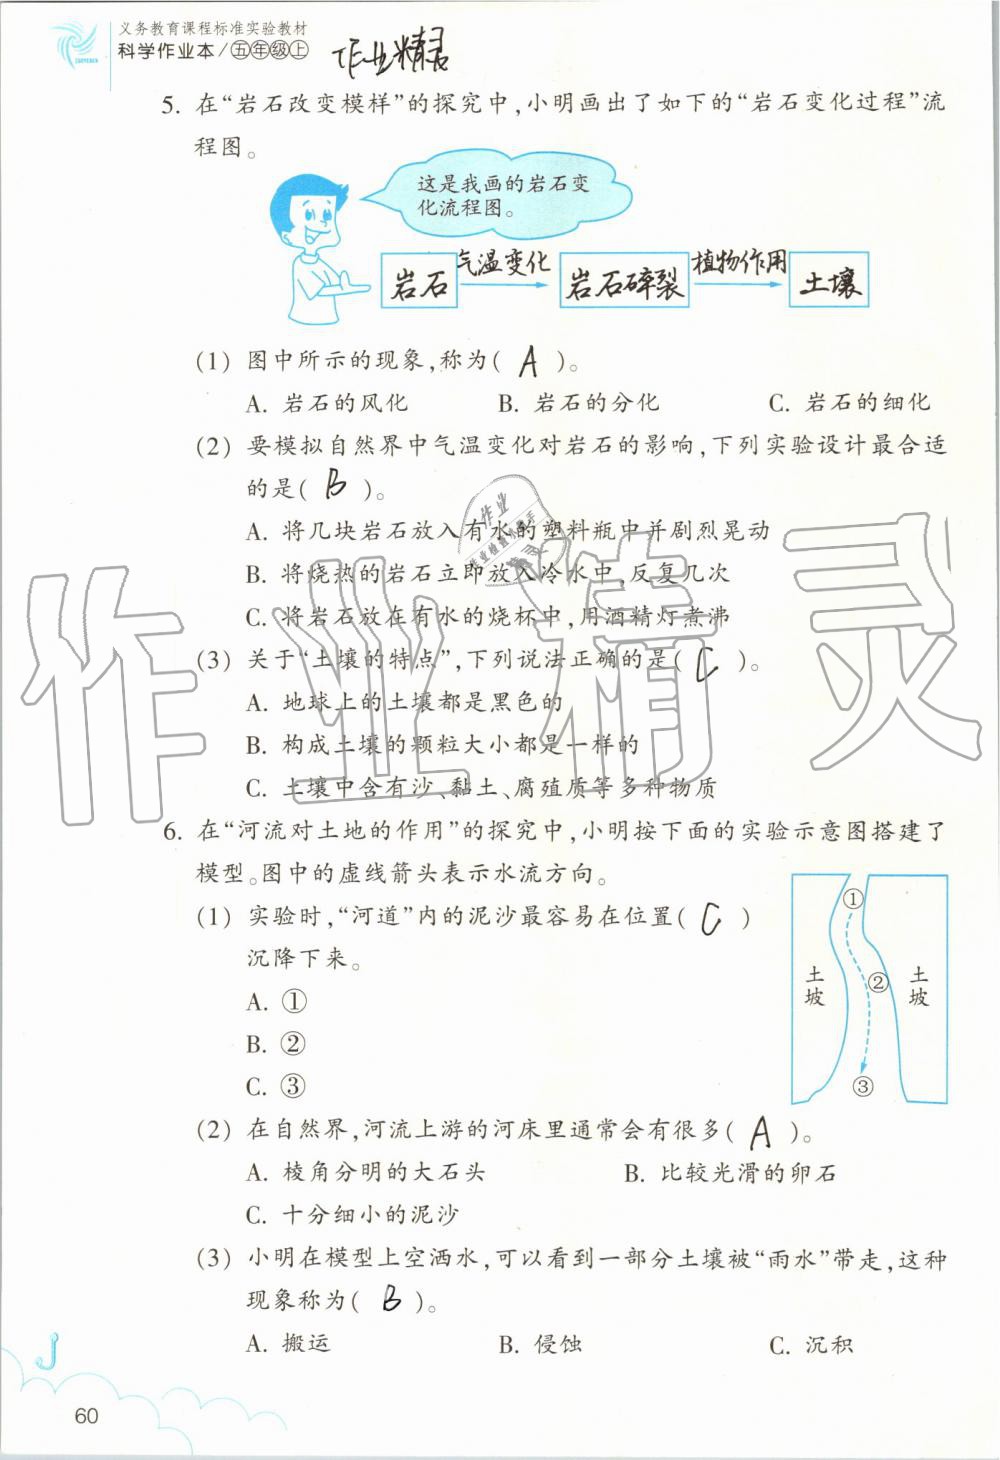 义务教育课程标准实验教材
科学作业本/五年级上
作业精灵
5. 在“岩石改变模样”的探究中,小明画出了如下的“岩石变化过程”流
程图。
这是我画的岩石变
化流程图。
岩石 气温变化 岩石碎裂 植物作用 土壤
(1) 图中所示的现象,称为( A )。
A. 岩石的风化 B. 岩石的分化 C. 岩石的细化
(2) 要模拟自然界中气温变化对岩石的影响,下列实验设计最合适
的是( B )。
A. 将几块岩石放入有水的塑料瓶中并剧烈晃动
B. 将烧热的岩石立即放入冷水中,反复几次
C. 将岩石放在有水的烧杯中,用酒精灯煮沸
(3) 关于“土壤的特点”,下列说法正确的是( C )。
A. 地球上的土壤都是黑色的
B. 构成土壤的颗粒大小都是一样的
C. 土壤中含有沙、黏土、腐殖质等多种物质
6. 在“河流对土地的作用”的探究中,小明按下面的实验示意图搭建了
模型。图中的虚线箭头表示水流方向。
(1) 实验时,“河道”内的泥沙最容易在位置( C )
沉降下来。
A. ①
B. ②
C. ③
①
土坡 ② 土坡
③
(2) 在自然界,河流上游的河床里通常会有很多( A )。
A. 棱角分明的大石头 B. 比较光滑的卵石
C. 十分细小的泥沙
(3) 小明在模型上空洒水,可以看到一部分土壤被“雨水”带走,这种
现象称为( B )。
A. 搬运 B. 侵蚀 C. 沉积
60
作业精灵